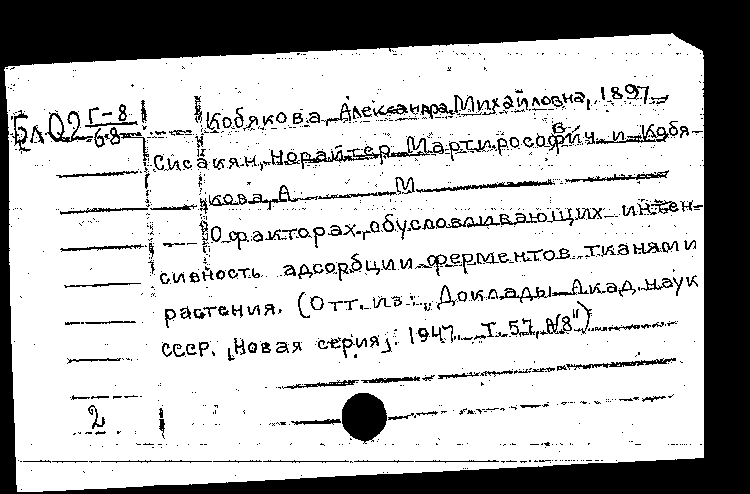 БлО2 Г-8
6-8
Кобякова, Александра Михайловна, 1897
Сисакян, Норайтер Мартиросович и Кобя-
кова, А М
О факторах, обусловливающих интен-
сивность адсорбции ферментов тканями
растения. (Отт. из: „Доклады Акад. наук
СССР. [Новая серия]. 1947. Т. 57, №8")
2